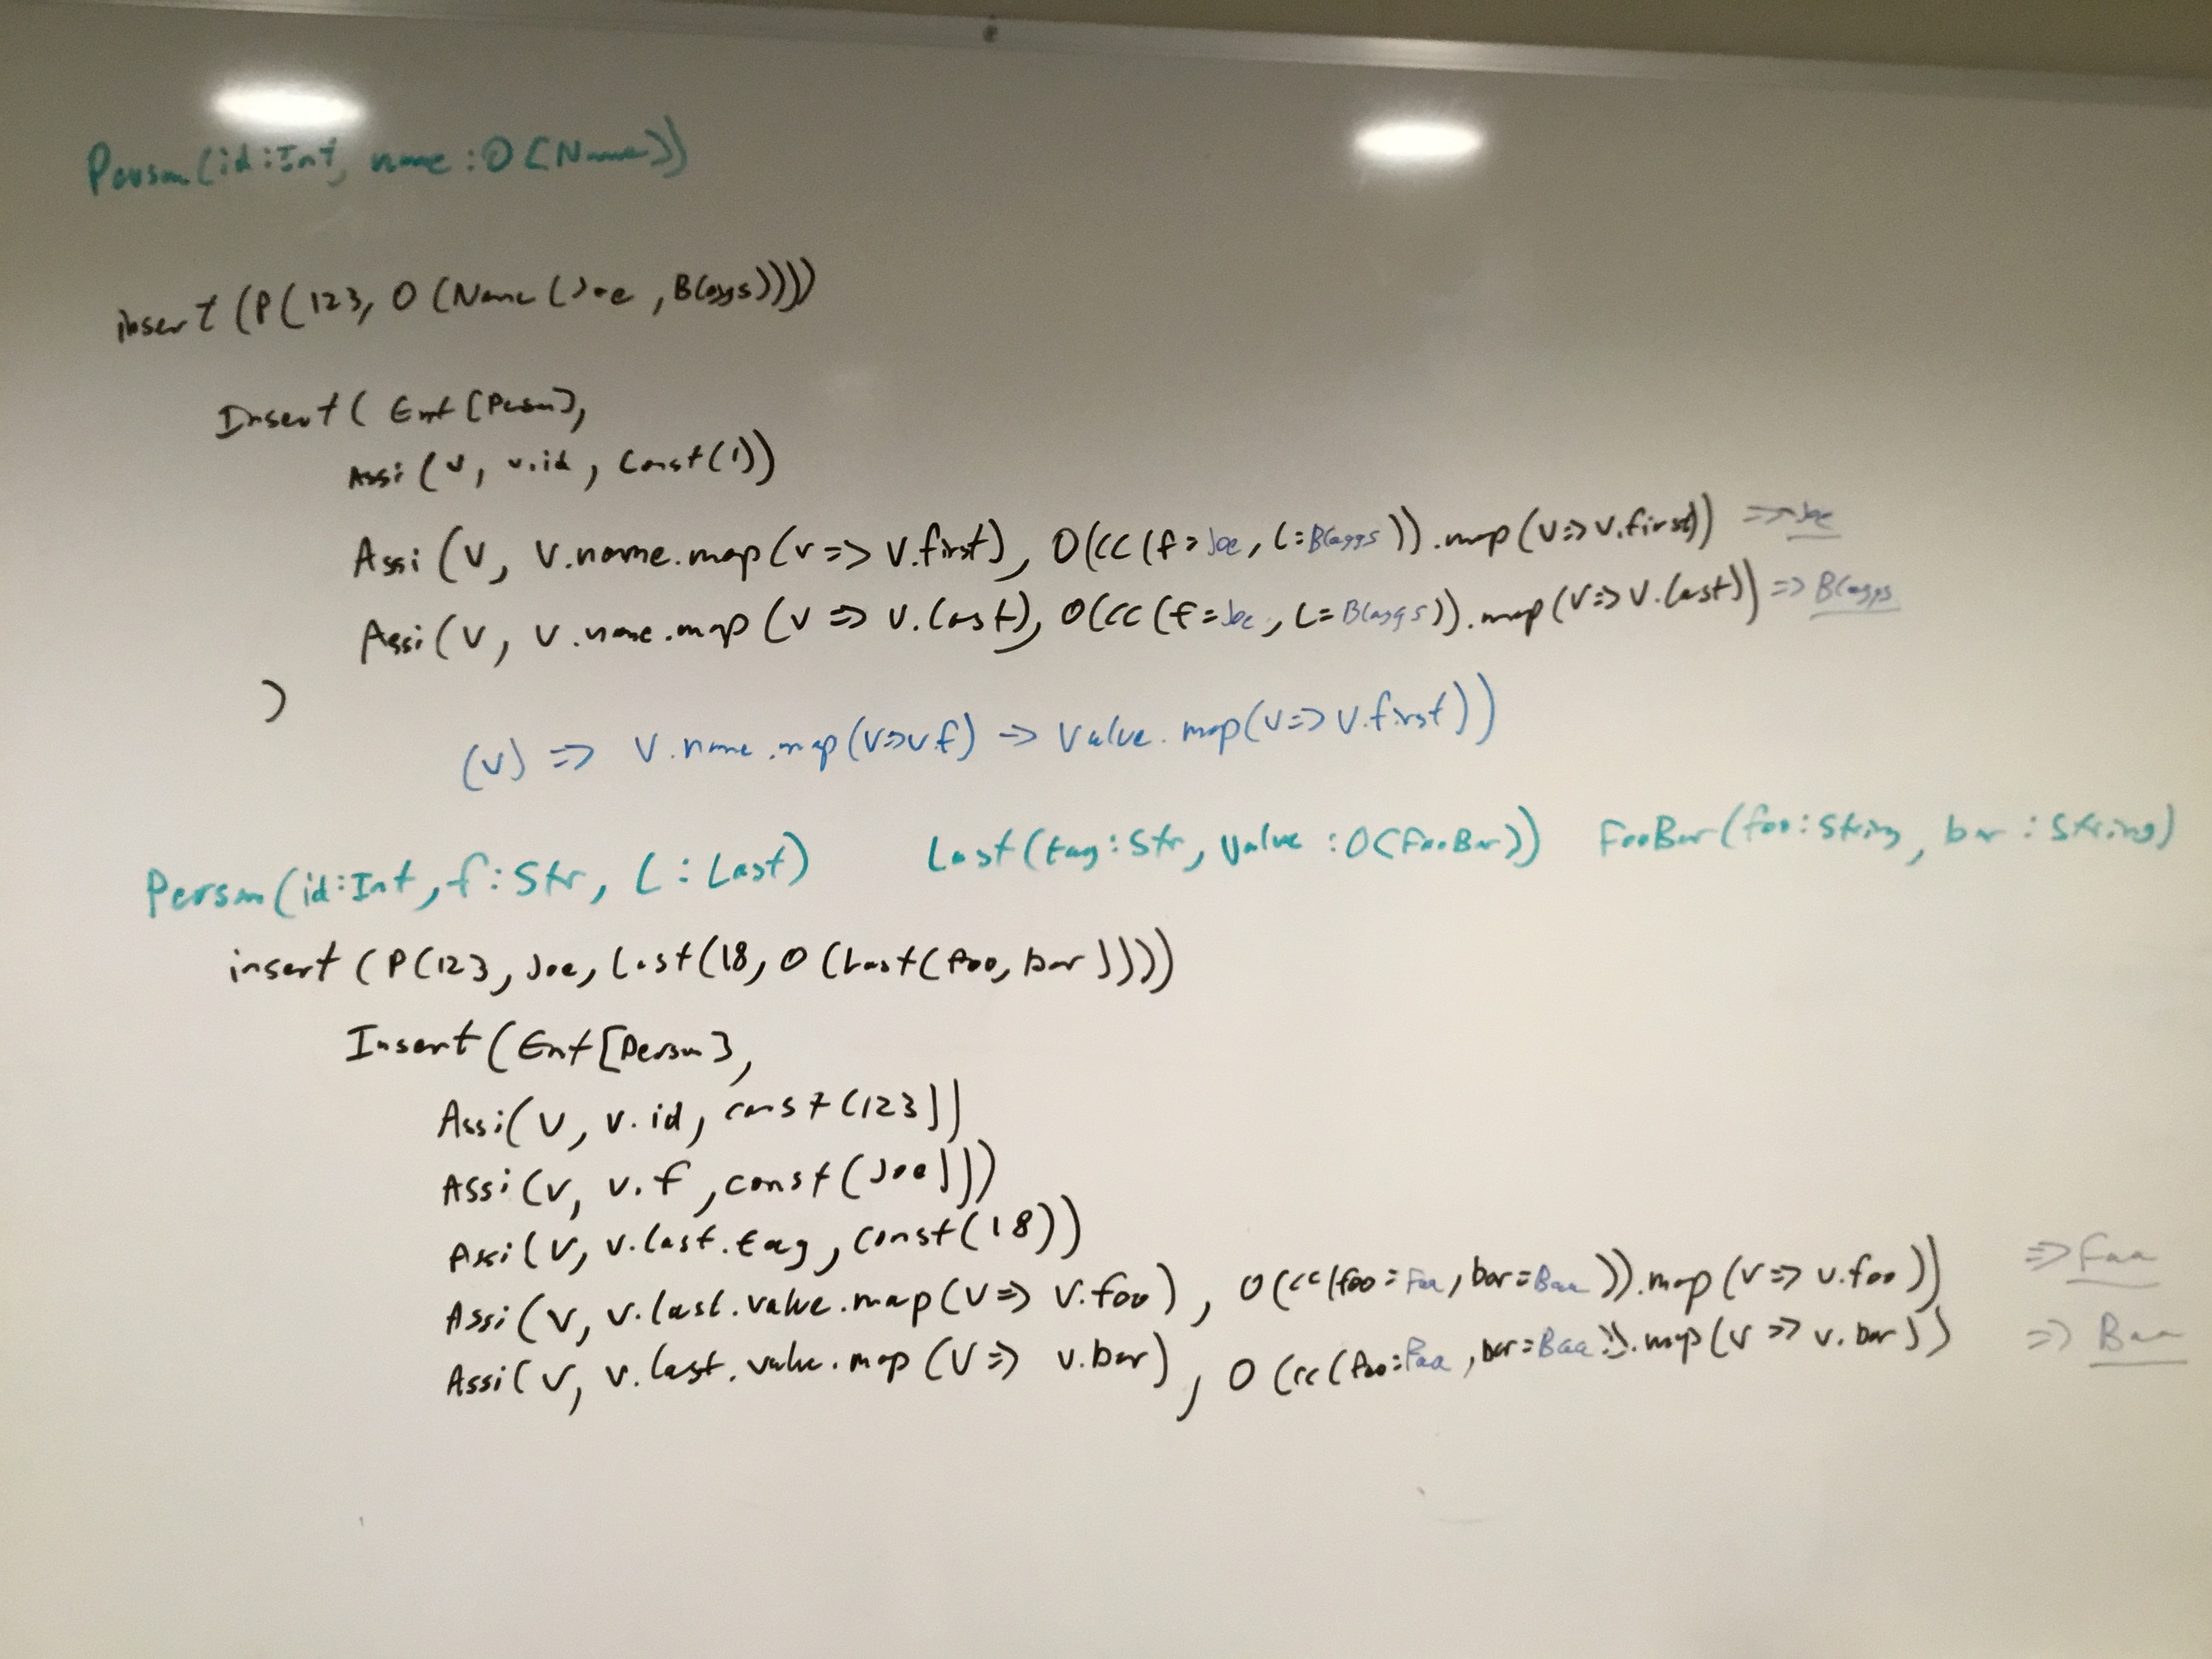 Person(id:Int, name:O[Name])
insert(P(123, O(Name(Joe, Bloggs))))
Insert( Ent[Person],
Assi(v, v.id, Const(1))
Assi(v, v.name.map(v=>v.first), O(CC(f=Joe, l=Bloggs)).map(v=>v.first)) => Joe
Assi(v, v.name.map(v=>v.last), O(CC(f=Joe, l=Bloggs)).map(v=>v.last)) => Bloggs
)
(v) => v.name.map(v=>v.f) -> value.map(v=>v.first))
Person(id:Int, f:Str, l:Last) Last(tag:Str, value:O(FooBar)) FooBar(foo:String, bar:String)
insert(P(123, Joe, Last(18, O(Last(foo, bar))))
Insert(Ent[Person],
Assi(v, v.id, const(123))
Assi(v, v.f, const(Joe)))
Assi(v, v.last.tag, const(18))
Assi(v, v.last.value.map(v=>v.foo), O(cc(foo=Faa, bar=Baa)).map(v=>v.foo)) => Faa
Assi(v, v.last.value.map(v=>v.bar), O(cc(foo=Faa, bar=Baa)).map(v=>v.bar)) => Baa